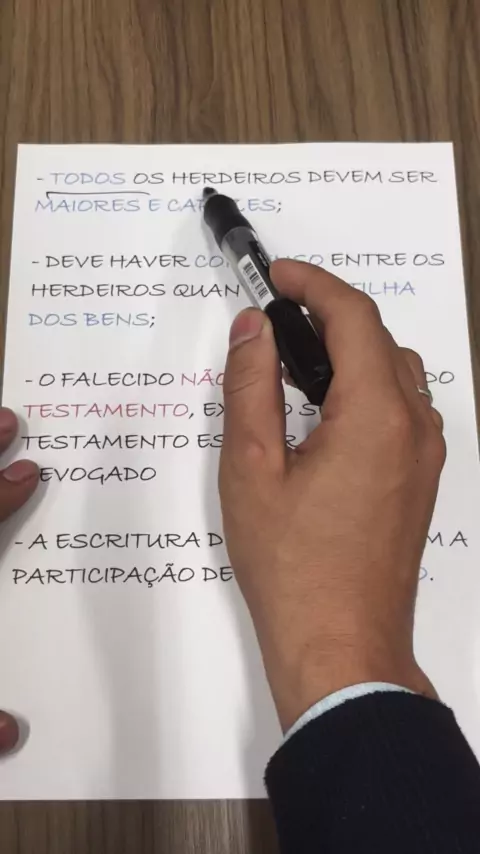 - TODOS OS HERDEIROS DEVEM SER
MAIORES E CAPAZES;
- DEVE HAVER CONSENSO ENTRE OS
HERDEIROS QUANTO PARTILHA
DOS BENS;
- O FALECIDO NÃO
TESTAMENTO,
TESTAMENTO
REVOGADO
- A ESCRITURA A
PARTICIPAÇÃO DE